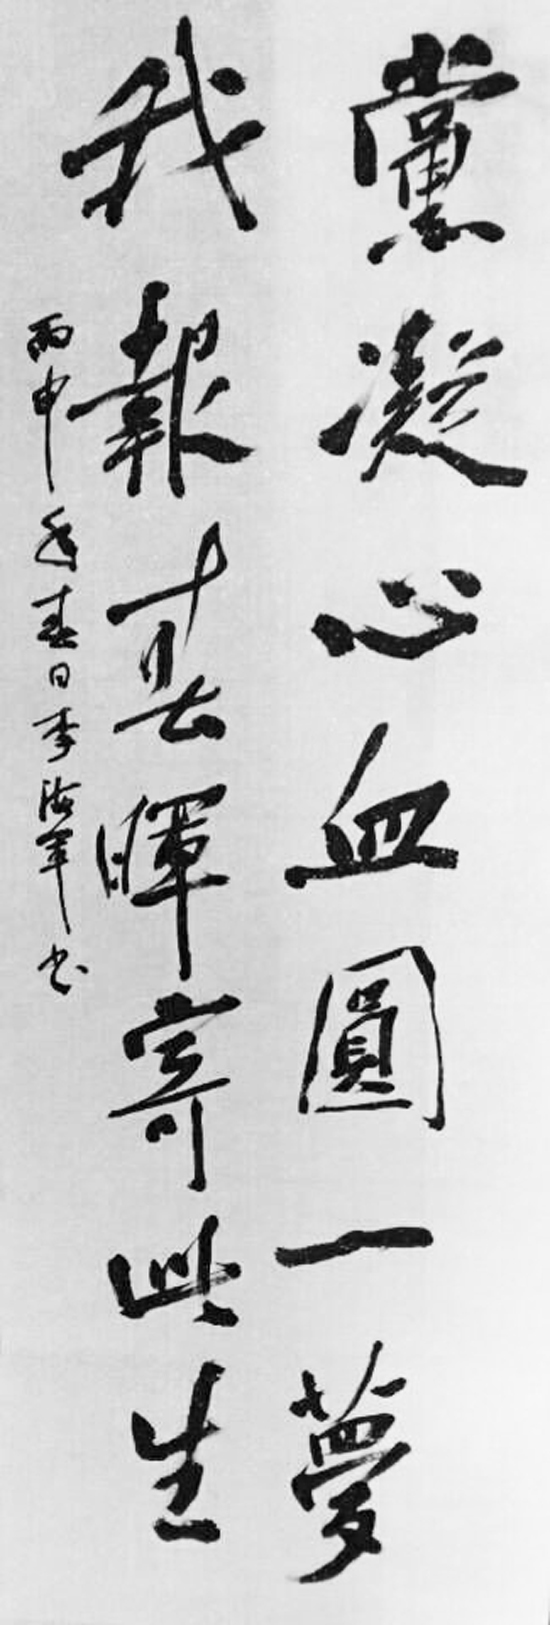 黨凝心血圓一夢
我報春暉寄此生
丙申年春日李海軍书